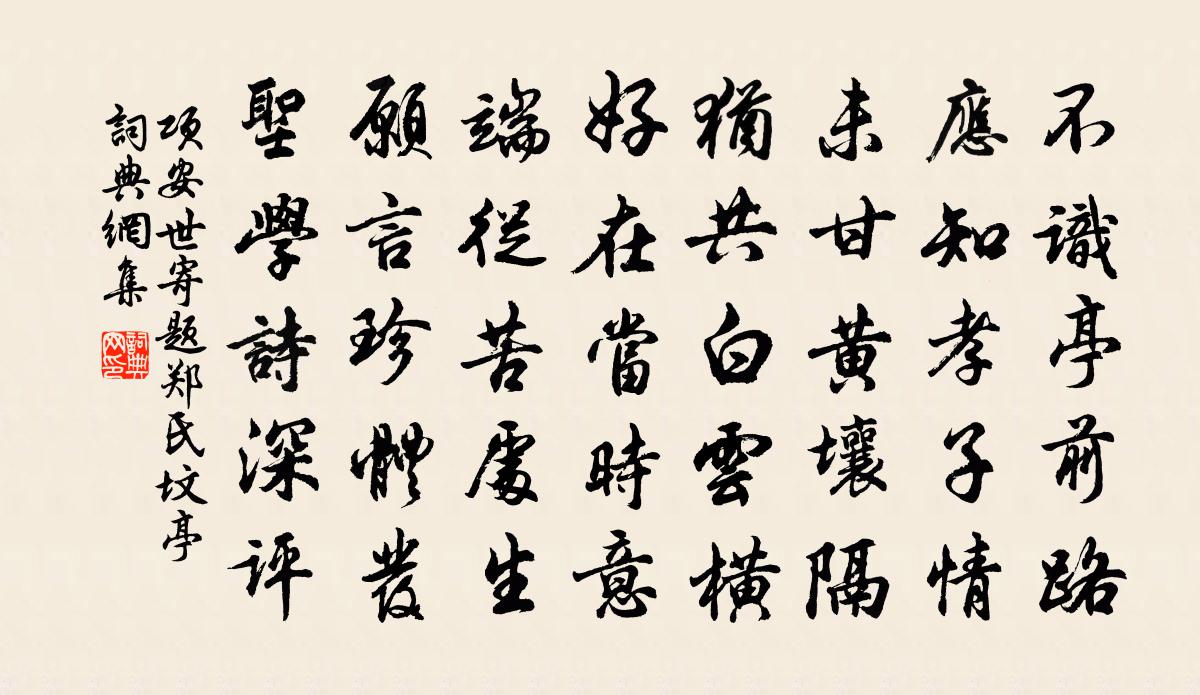 不識亭前路
應知孝子情
未甘黃壤隔
猶共白雲橫
好在當時意
端從苦處生
願言珍體發
聖學詩深評
項安世寄題郑氏坟亭
詞典網集
詞典网印